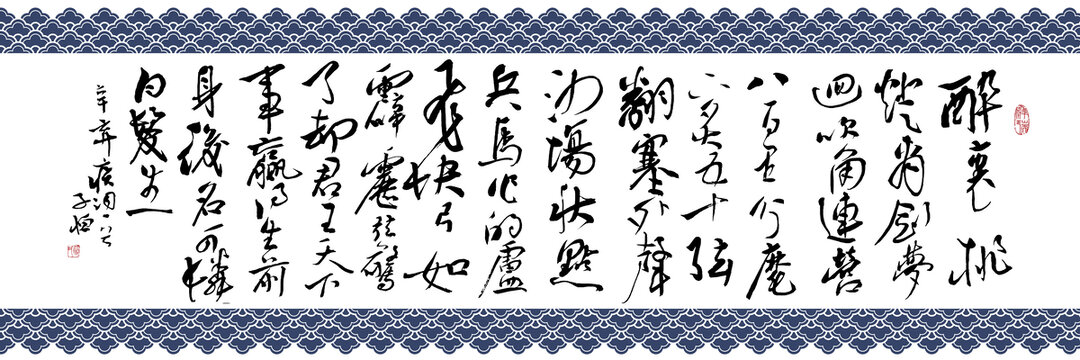 醉裏挑
燈看劍夢
迴吹角連營
八百里分麾
下炙五十弦
翻塞外聲
沙場秋點
兵馬作的盧
飛快弓如
霹靂弦驚
了却君王天下
事贏得生前
身後名可憐
白髮生
辛弃疾詞一首